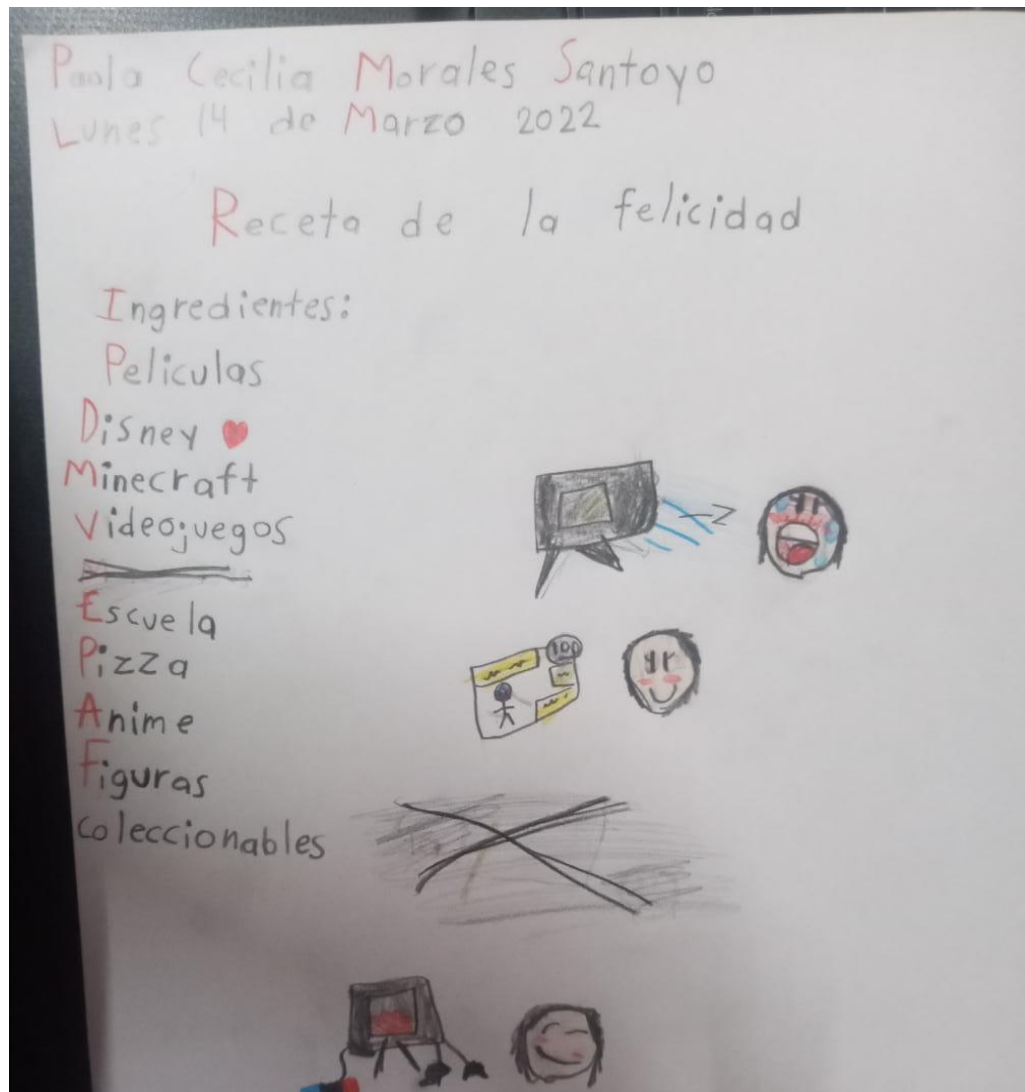 Paola Cecilia Morales Santoyo
Lunes 14 de Marzo 2022
Receta de la felicidad
Ingredientes:
Peliculas
Disney
Minecraft
Videojuegos
Escuela
Pizza
Anime
Figuras
coleccionables
100